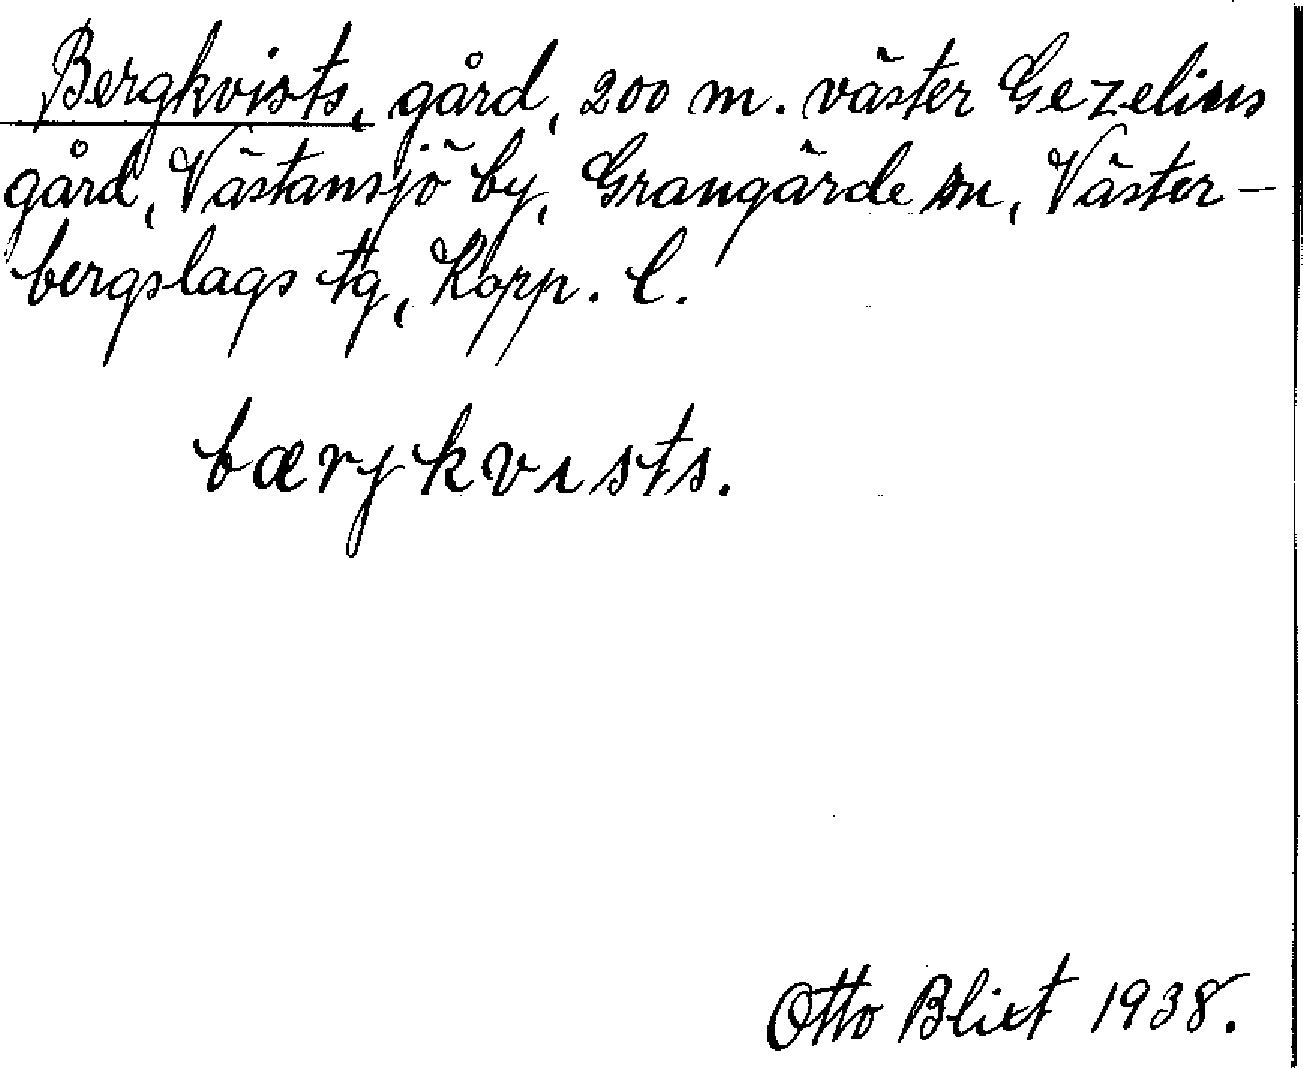 Bergkvists, gård, 200 m. väster Gezelius
gård, Västansjö by, Grangärde sn, Väster-
bergslags tg, Kopp. l.
bærjkvısts.
Otto Blixt 1938.